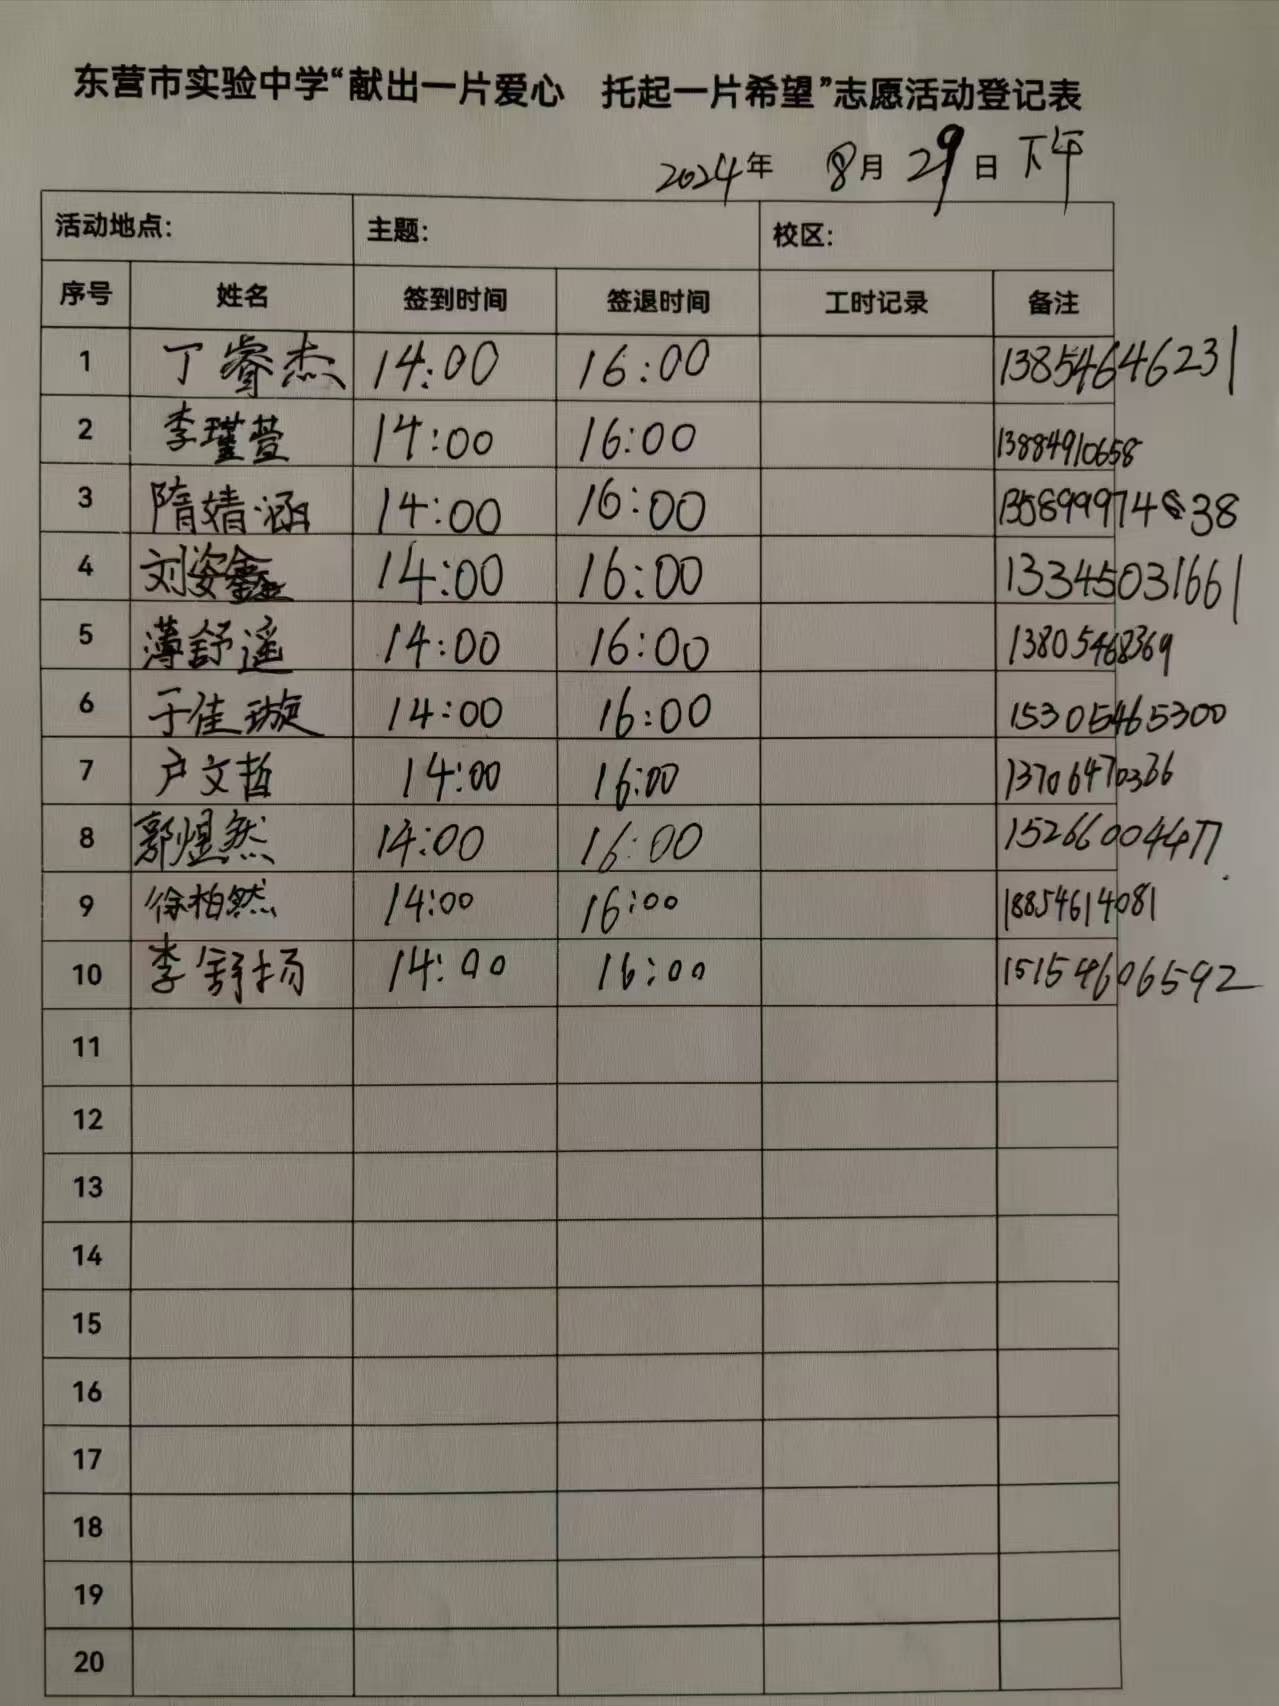 东营市实验中学“献出一片爱心 托起一片希望”志愿活动登记表
2024年 8月29日下午
活动地点: 主题: 校区:
序号 姓名 签到时间 签退时间 工时记录 备注
1 丁睿杰 14:00 16:00 13854646231
2 李瑾萱 14:00 16:00 13884910658
3 隋婧涵 14:00 16:00 135899974 38
4 刘姿鑫 14:00 16:00 13345031661
5 薄舒遥 14:00 16:00 13805468369
6 于佳璇 14:00 16:00 15305465300
7 卢文哲 14:00 16:00 13706470366
8 郭煜然 14:00 16:00 15266004477
9 徐柏然 14:00 16:00 18854614081
10 李舒扬 14:00 16:00 15154606592
11
12
13
14
15
16
17
18
19
20